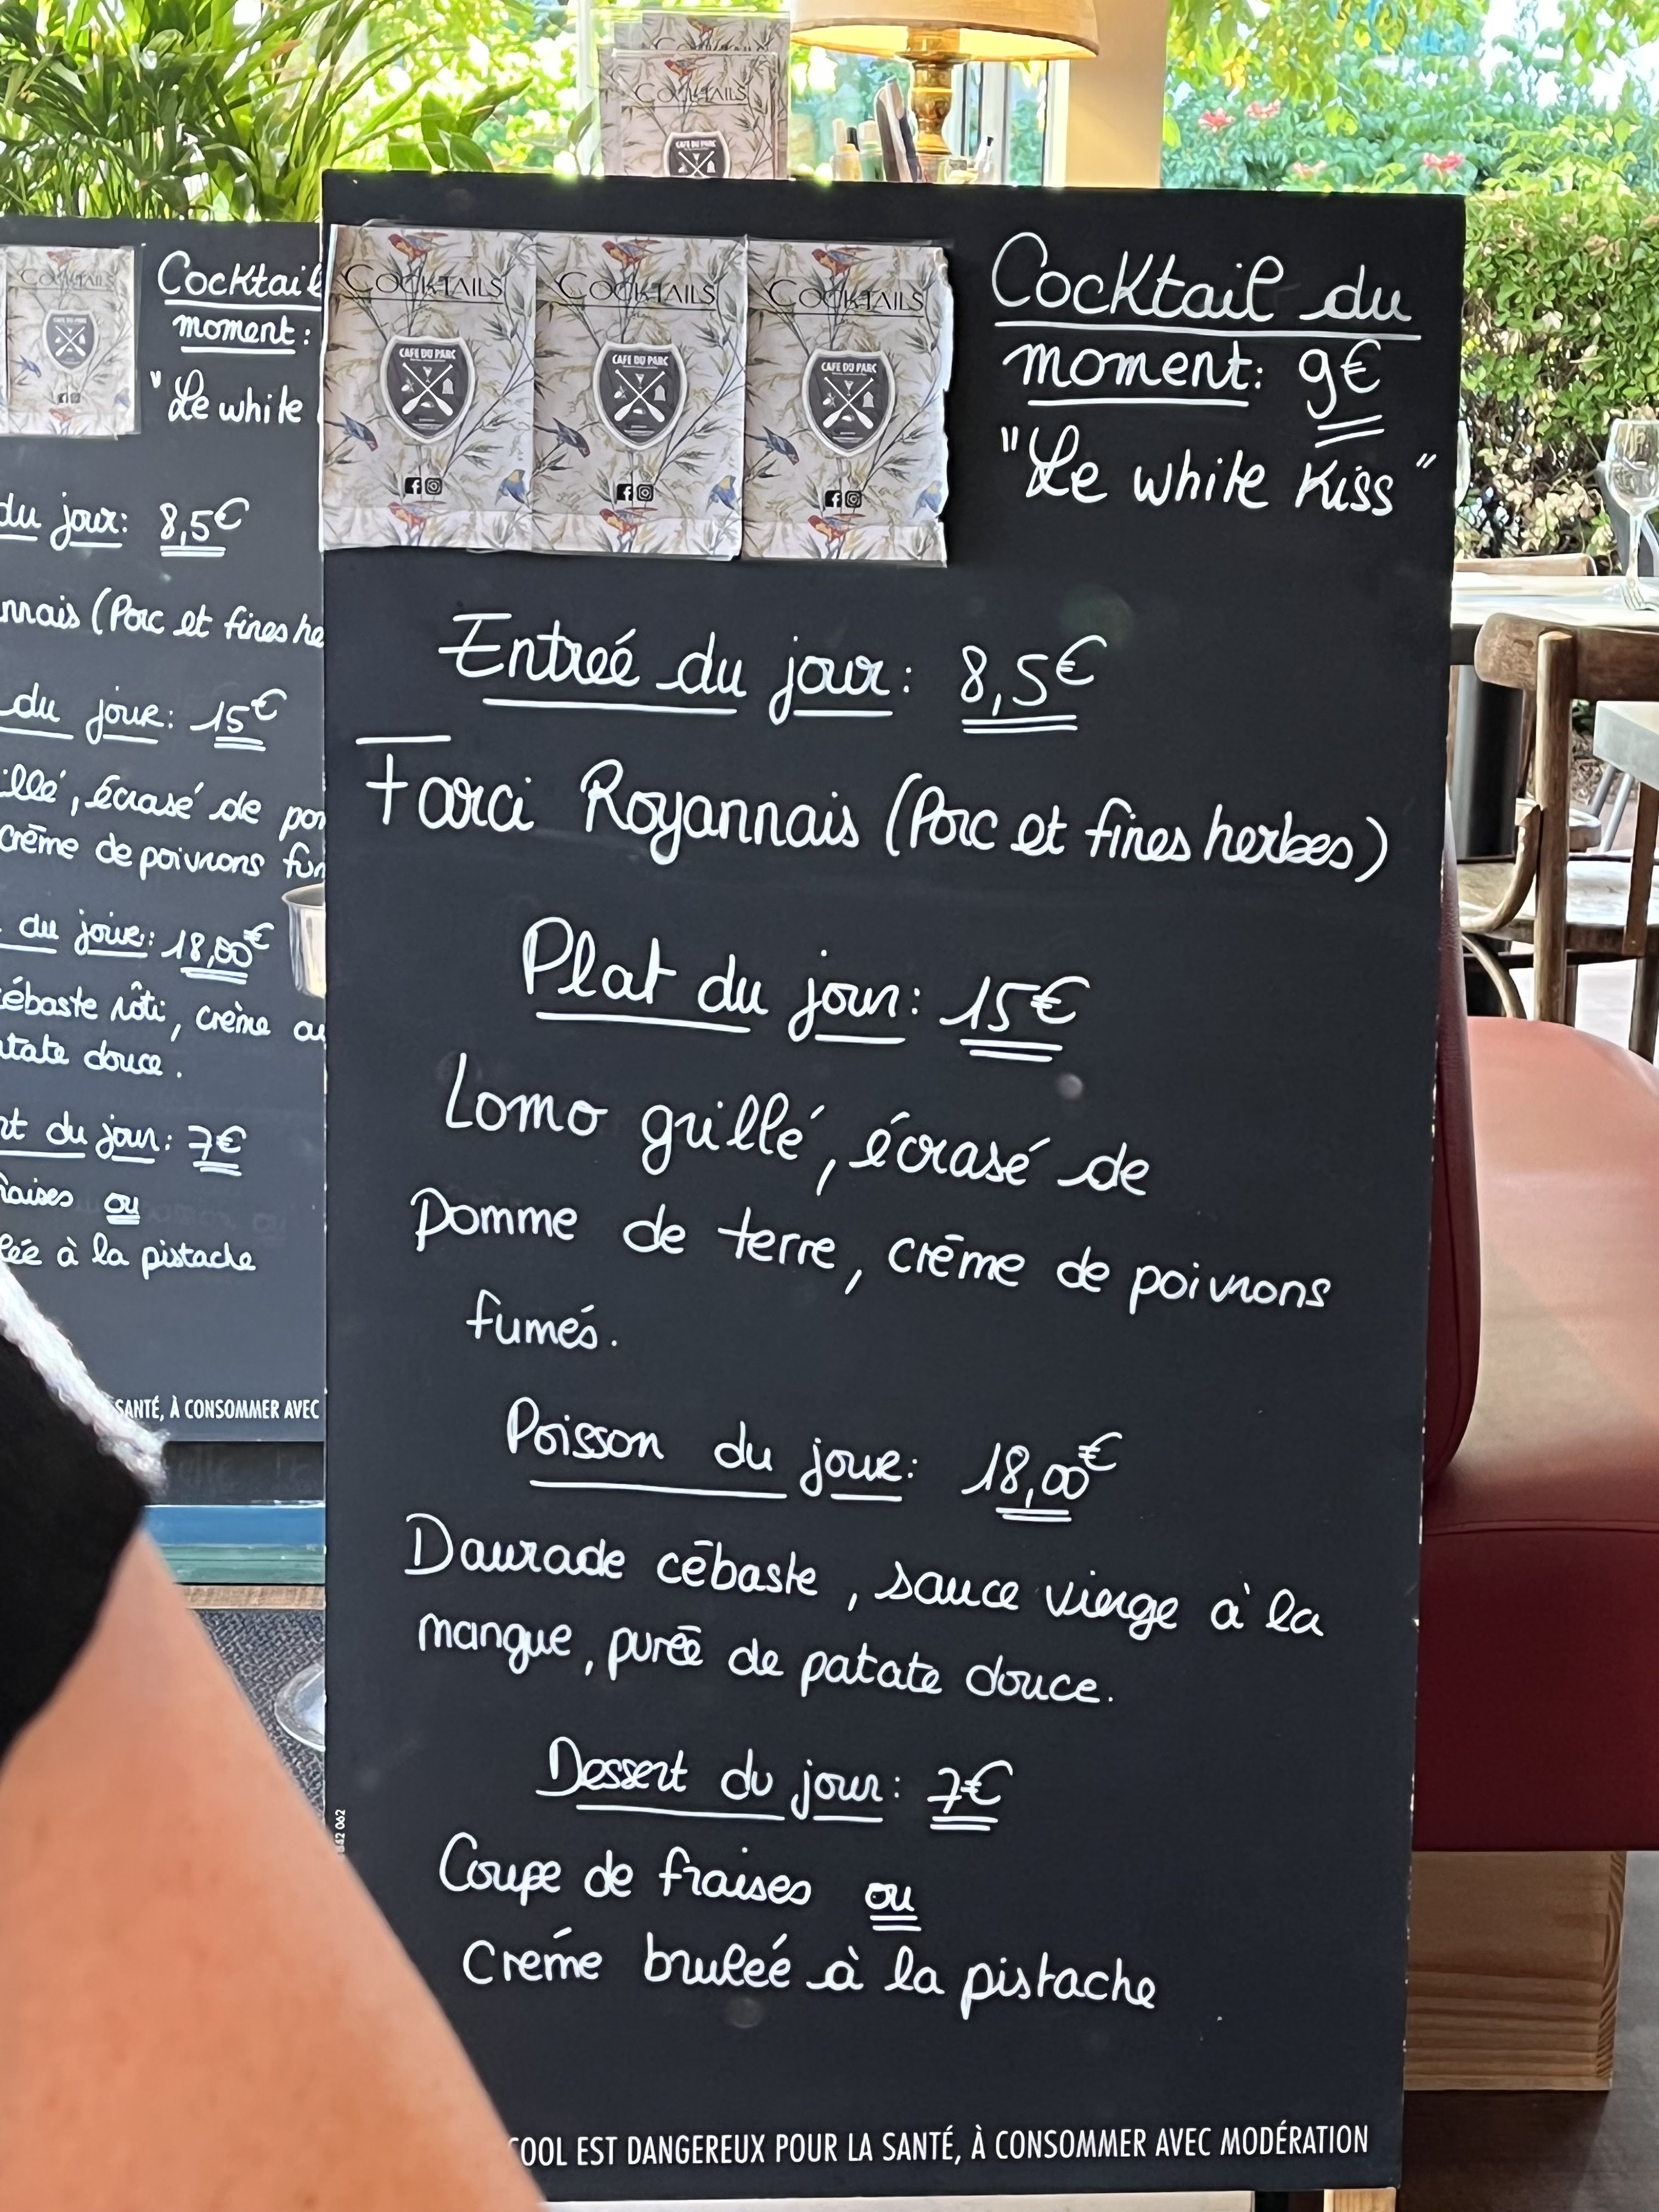 COCKTAILS
CAFE DU PARC
Cocktail
moment:
"Le white
du jour: 8,5€
nnais (Porc et fines he
du jour: 15€
illé, écrasé de pom
crēme de poivrons fum
du jour: 18,00€
cébaste rôti, crème au
tate douce.
nt du jour: 7€
raises ou
lée à la pistache
SANTÉ, À CONSOMMER AVEC
COCKTAILS
COCKTAILS
CAFE DU PARC
COCKTAILS COCKTAILS COCKTAILS
CAFE DU PARC CAFE DU PARC CAFE DU PARC
Cocktail du
moment: 9€
"Le white Kiss"
Entreé du jour: 8,5€
Farci Royannais (Porc et fines herbes)
Plat du jour: 15€
Lomo grillé, écrasé de
Pomme de terre, crēme de poivrons
fumés.
Poisson du jour: 18,00€
Daurade cēbaste, sauce vierge à la
mangue, purēe de patate douce.
Dessert du jour: 7€
Coupe de fraises ou
Créme bruleé à la pistache
COOL EST DANGEREUX POUR LA SANTÉ, À CONSOMMER AVEC MODÉRATION
842 062